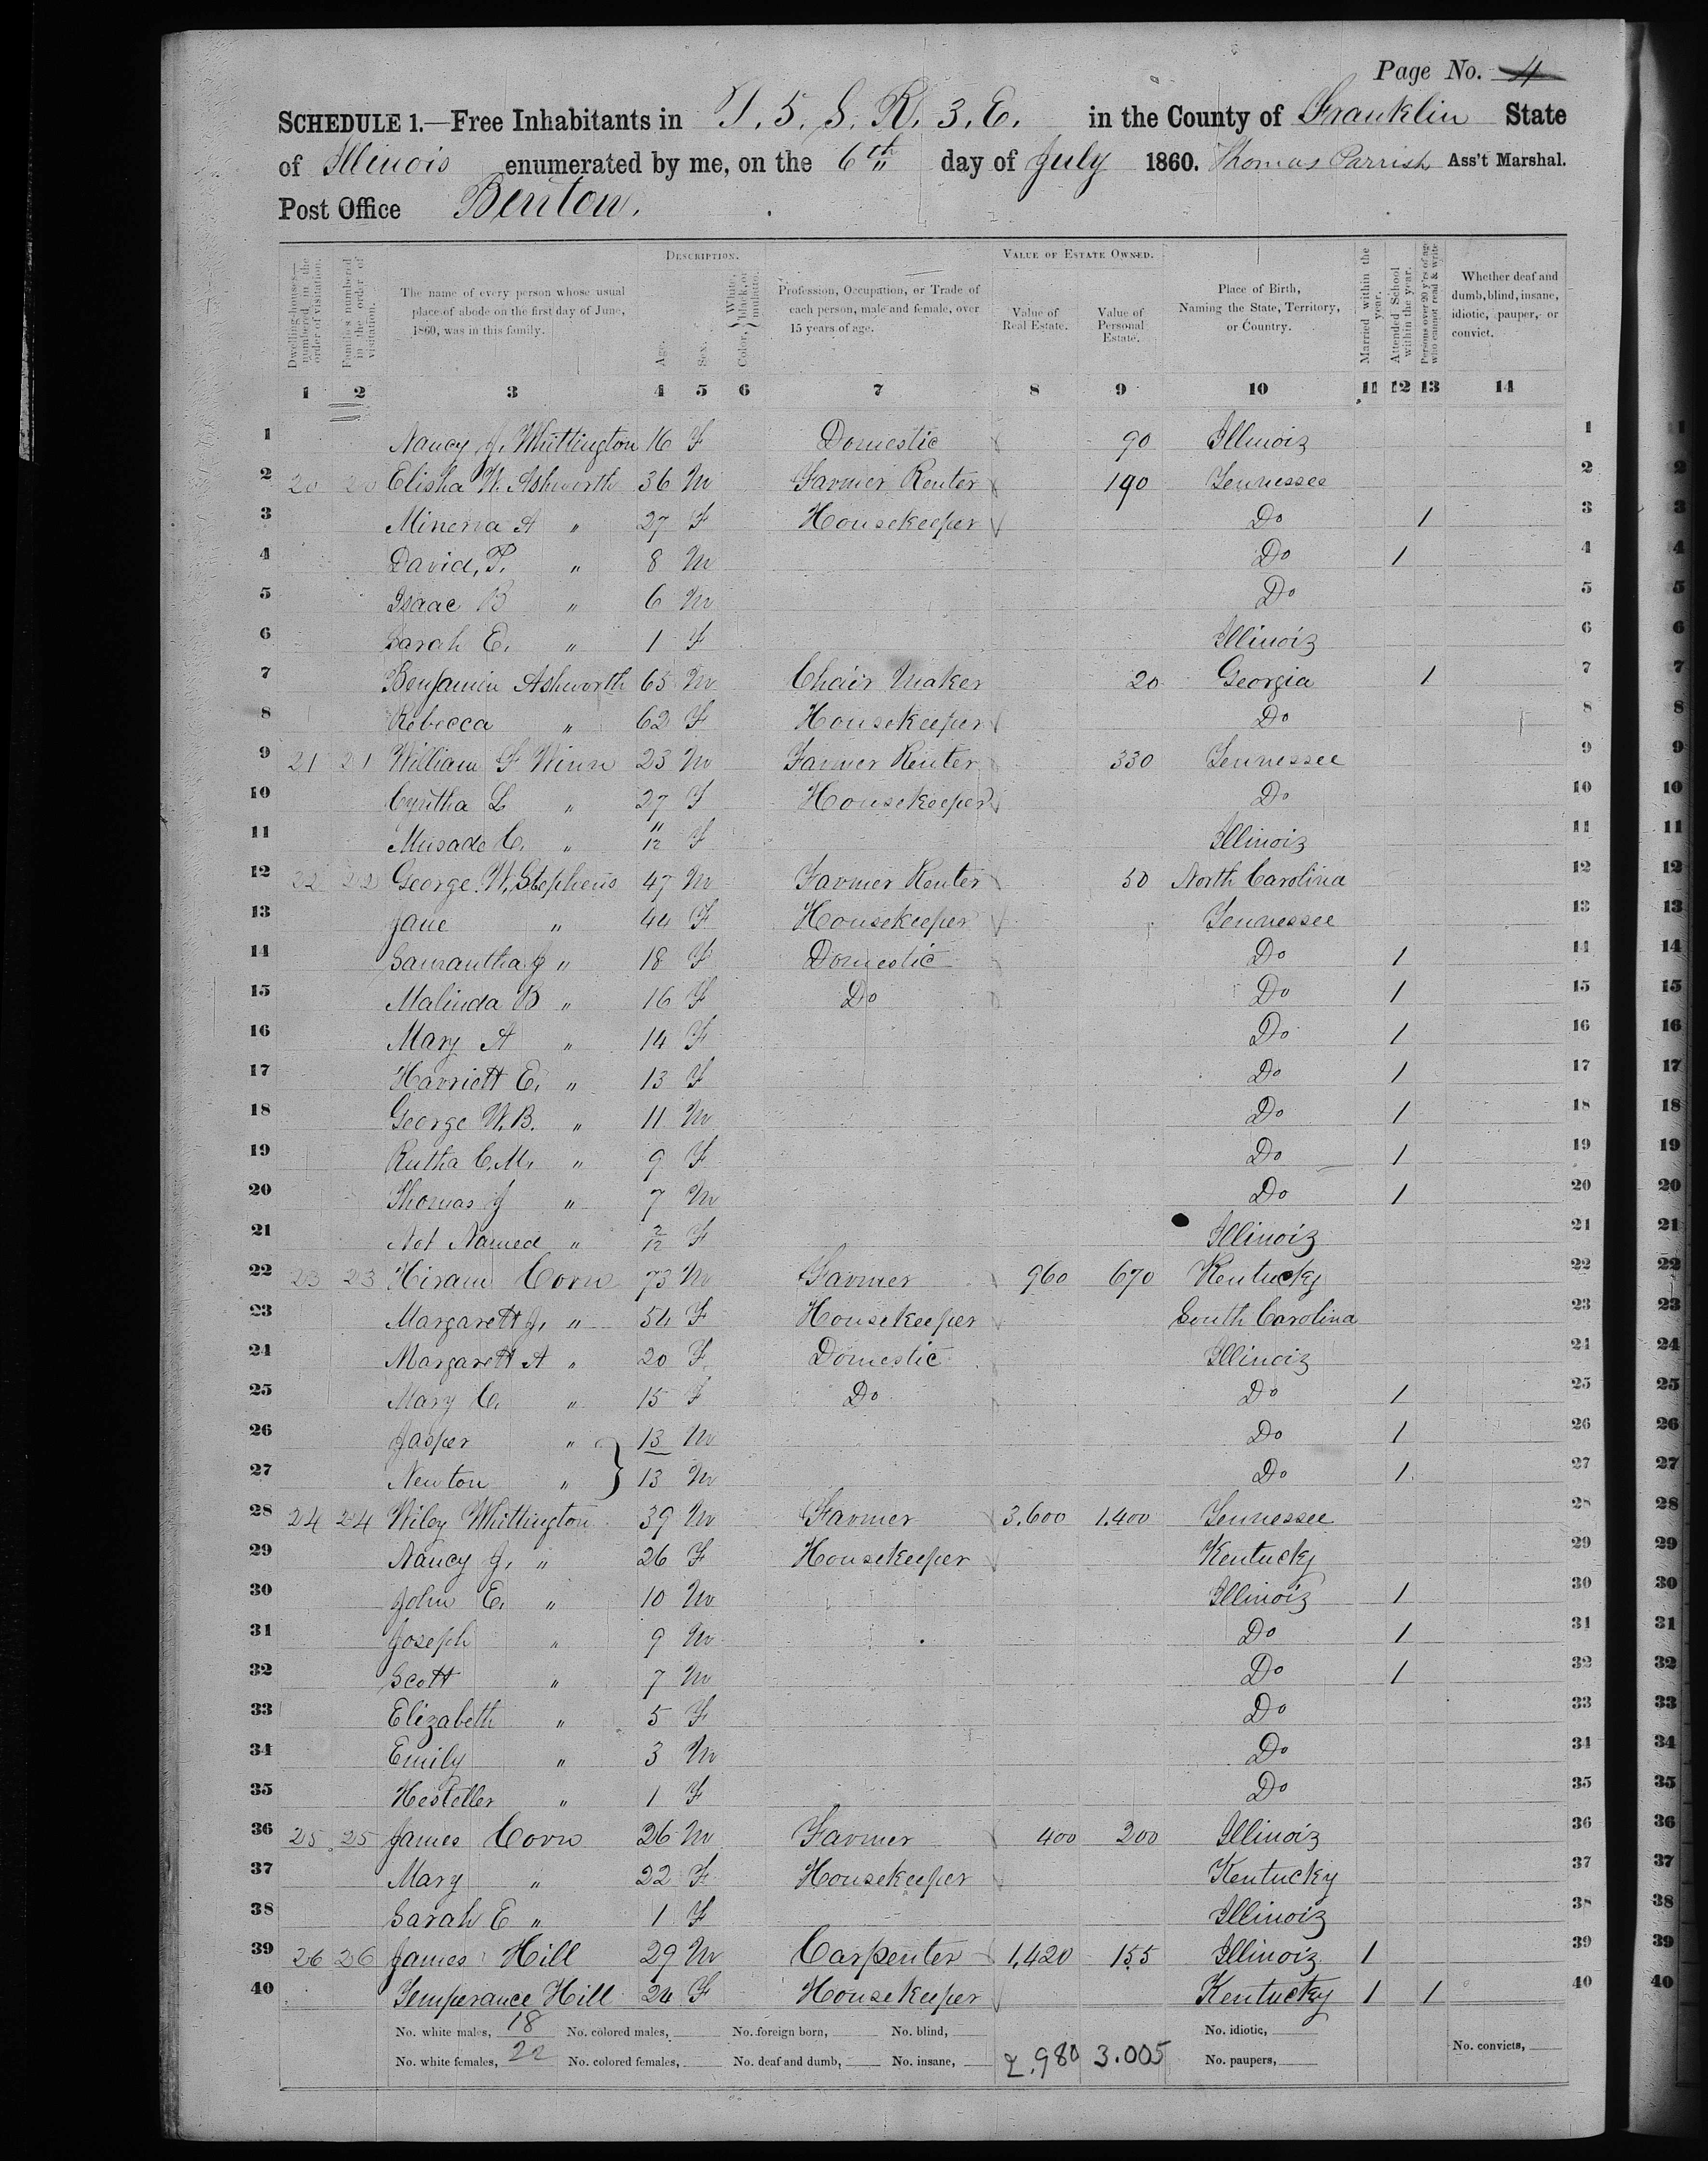 Page No. 4
SCHEDULE 1.—Free Inhabitants in T. 5. S. R. 3. E. in the County of Franklin State
of Illinois enumerated by me, on the 6th day of July 1860. Thomas Parrish Ass't Marshal.
Post Office Benton.
Dwelling-houses—numbered in the order of visitation.
Families numbered in the order of visitation.
The name of every person whose usual place of abode on the first day of June, 1860, was in this family.
DESCRIPTION.
Age.
Sex.
Color, { White, black, or mulatto.
Profession, Occupation, or Trade of each person, male and female, over 15 years of age.
VALUE OF ESTATE OWNED.
Value of Real Estate.
Value of Personal Estate.
Place of Birth, Naming the State, Territory, or Country.
Married within the year.
Attended School within the year.
Persons over 20 y'rs of age who cannot read & write
Whether deaf and dumb, blind, insane, idiotic, pauper, or convict.
1 2 3 4 5 6 7 8 9 10 11 12 13 14
1 Nancy J. Whittington 16 F Domestic 90 Illinoiz 1
2 20 20 Elisha W. Ashworth 36 M Farmer Renter 190 Tennessee 2
3 Minerva A " 27 F Housekeeper Do 1 3
4 David, P. " 8 M Do 1 4
5 Isaac B " 6 M Do 5
6 Sarah E. " 1 F Illinoiz 6
7 Benjamin Ashworth 65 M Chair Maker 20 Georgia 1 7
8 Rebecca " 62 F Housekeeper Do 8
9 21 21 William F Ninn 23 M Farmer Renter 330 Tennessee 9
10 Cyntha L " 27 F Housekeeper Do 10
11 Musado C. " 11/12 F Illinoiz 11
12 22 22 George W. Stephens 47 M Farmer Renter 50 North Carolina 12
13 Jane " 44 F Housekeeper Tennessee 13
14 Samantha J " 18 F Domestic Do 1 14
15 Malinda B " 16 F Do Do 1 15
16 Mary A " 14 F Do 1 16
17 Harriett E. " 13 F Do 1 17
18 George W. B. " 11 M Do 1 18
19 Rutha C. M. " 9 F Do 1 19
20 Thomas J " 7 M Do 1 20
21 Not Named " 2/12 F Illinoiz 21
22 23 23 Hiram Corn 73 M Farmer 960 670 Kentucky 22
23 Margarett J. " 54 F Housekeeper South Carolina 23
24 Margarett A " 20 F Domestic Illinoiz 24
25 Mary C. " 15 F Do Do 1 25
26 Jasper " } 13 M Do 1 26
27 Newton " } 13 M Do 1 27
28 24 24 Wiley Whittington 39 M Farmer 3.600 1.400 Tennessee 28
29 Nancy J. " 26 F Housekeeper Kentucky 29
30 John E. " 10 M Illinoiz 1 30
31 Joseph " 9 M Do 1 31
32 Scott " 7 M Do 1 32
33 Elizabeth " 5 F Do 33
34 Emily " 3 M Do 34
35 Hesteller " 1 F Do 35
36 25 25 James Corn 26 M Farmer 400 200 Illinoiz 36
37 Mary " 22 F Housekeeper Kentucky 37
38 Sarah E " 1 F Illinoiz 38
39 26 26 James Hill 29 M Carpenter 1,420 155 Illinoiz 1 39
40 Temperance Hill 24 F Housekeeper Kentucky 1 1 40
No. white males, 18 No. colored males, No. foreign born, No. blind, No. idiotic,
No. white females, 22 No. colored females, No. deaf and dumb, No. insane, 2.980 3.005 No. paupers, No. convicts,